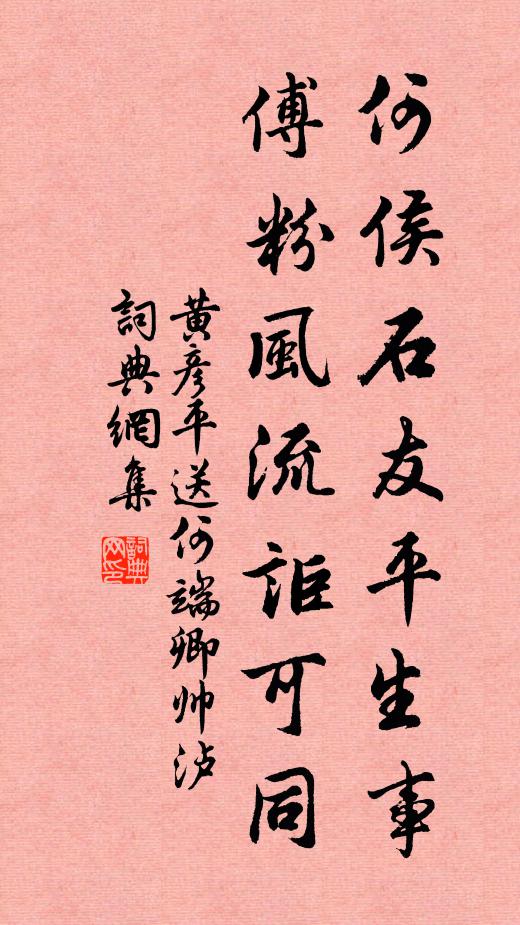 何侯石友平生事
傅粉風流詎可同
黄彥平送何端卿帅泸
詞典網集
詞典网印